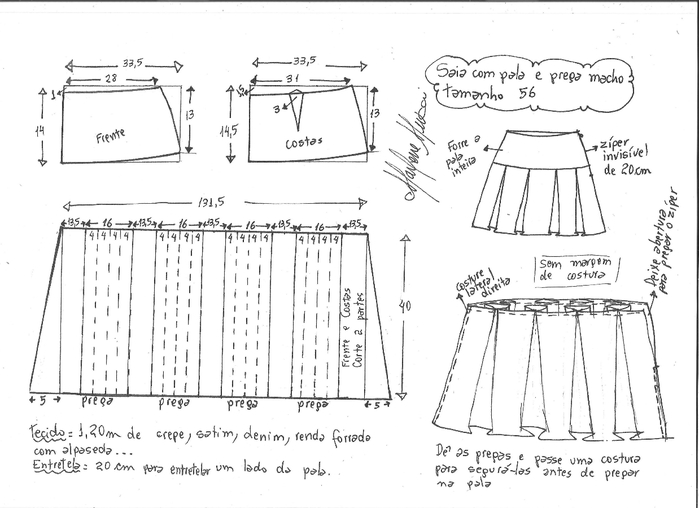 Saia com pala e prega macho
tamanho 56
33,5
28
1
14
13
Frente
33,5
31
1,5
3
14,5
13
Costas
Marlene Mukai
Forre a
pala
inteira
zíper
invisível
de 20cm
131,5
13,5 16 13,5 16 13,5 16 13,5 16 13,5
4 4 4 4 4 4 4 4 4 4 4 4 4 4 4 4
40
Frente e Costas
Corte 2 partes
5 prega prega prega prega 5
Sem margem
de costura
costure
lateral
direita
Deixe abertura
para pregar o zíper
Tecido = 1,20m de crepe, setim, denim, renda forrada
com alpaseda...
Entretela = 20 cm para entretelar um lado da pala.
Dê as pregas e passe uma costura
para segurá-las antes de pregar
na pala